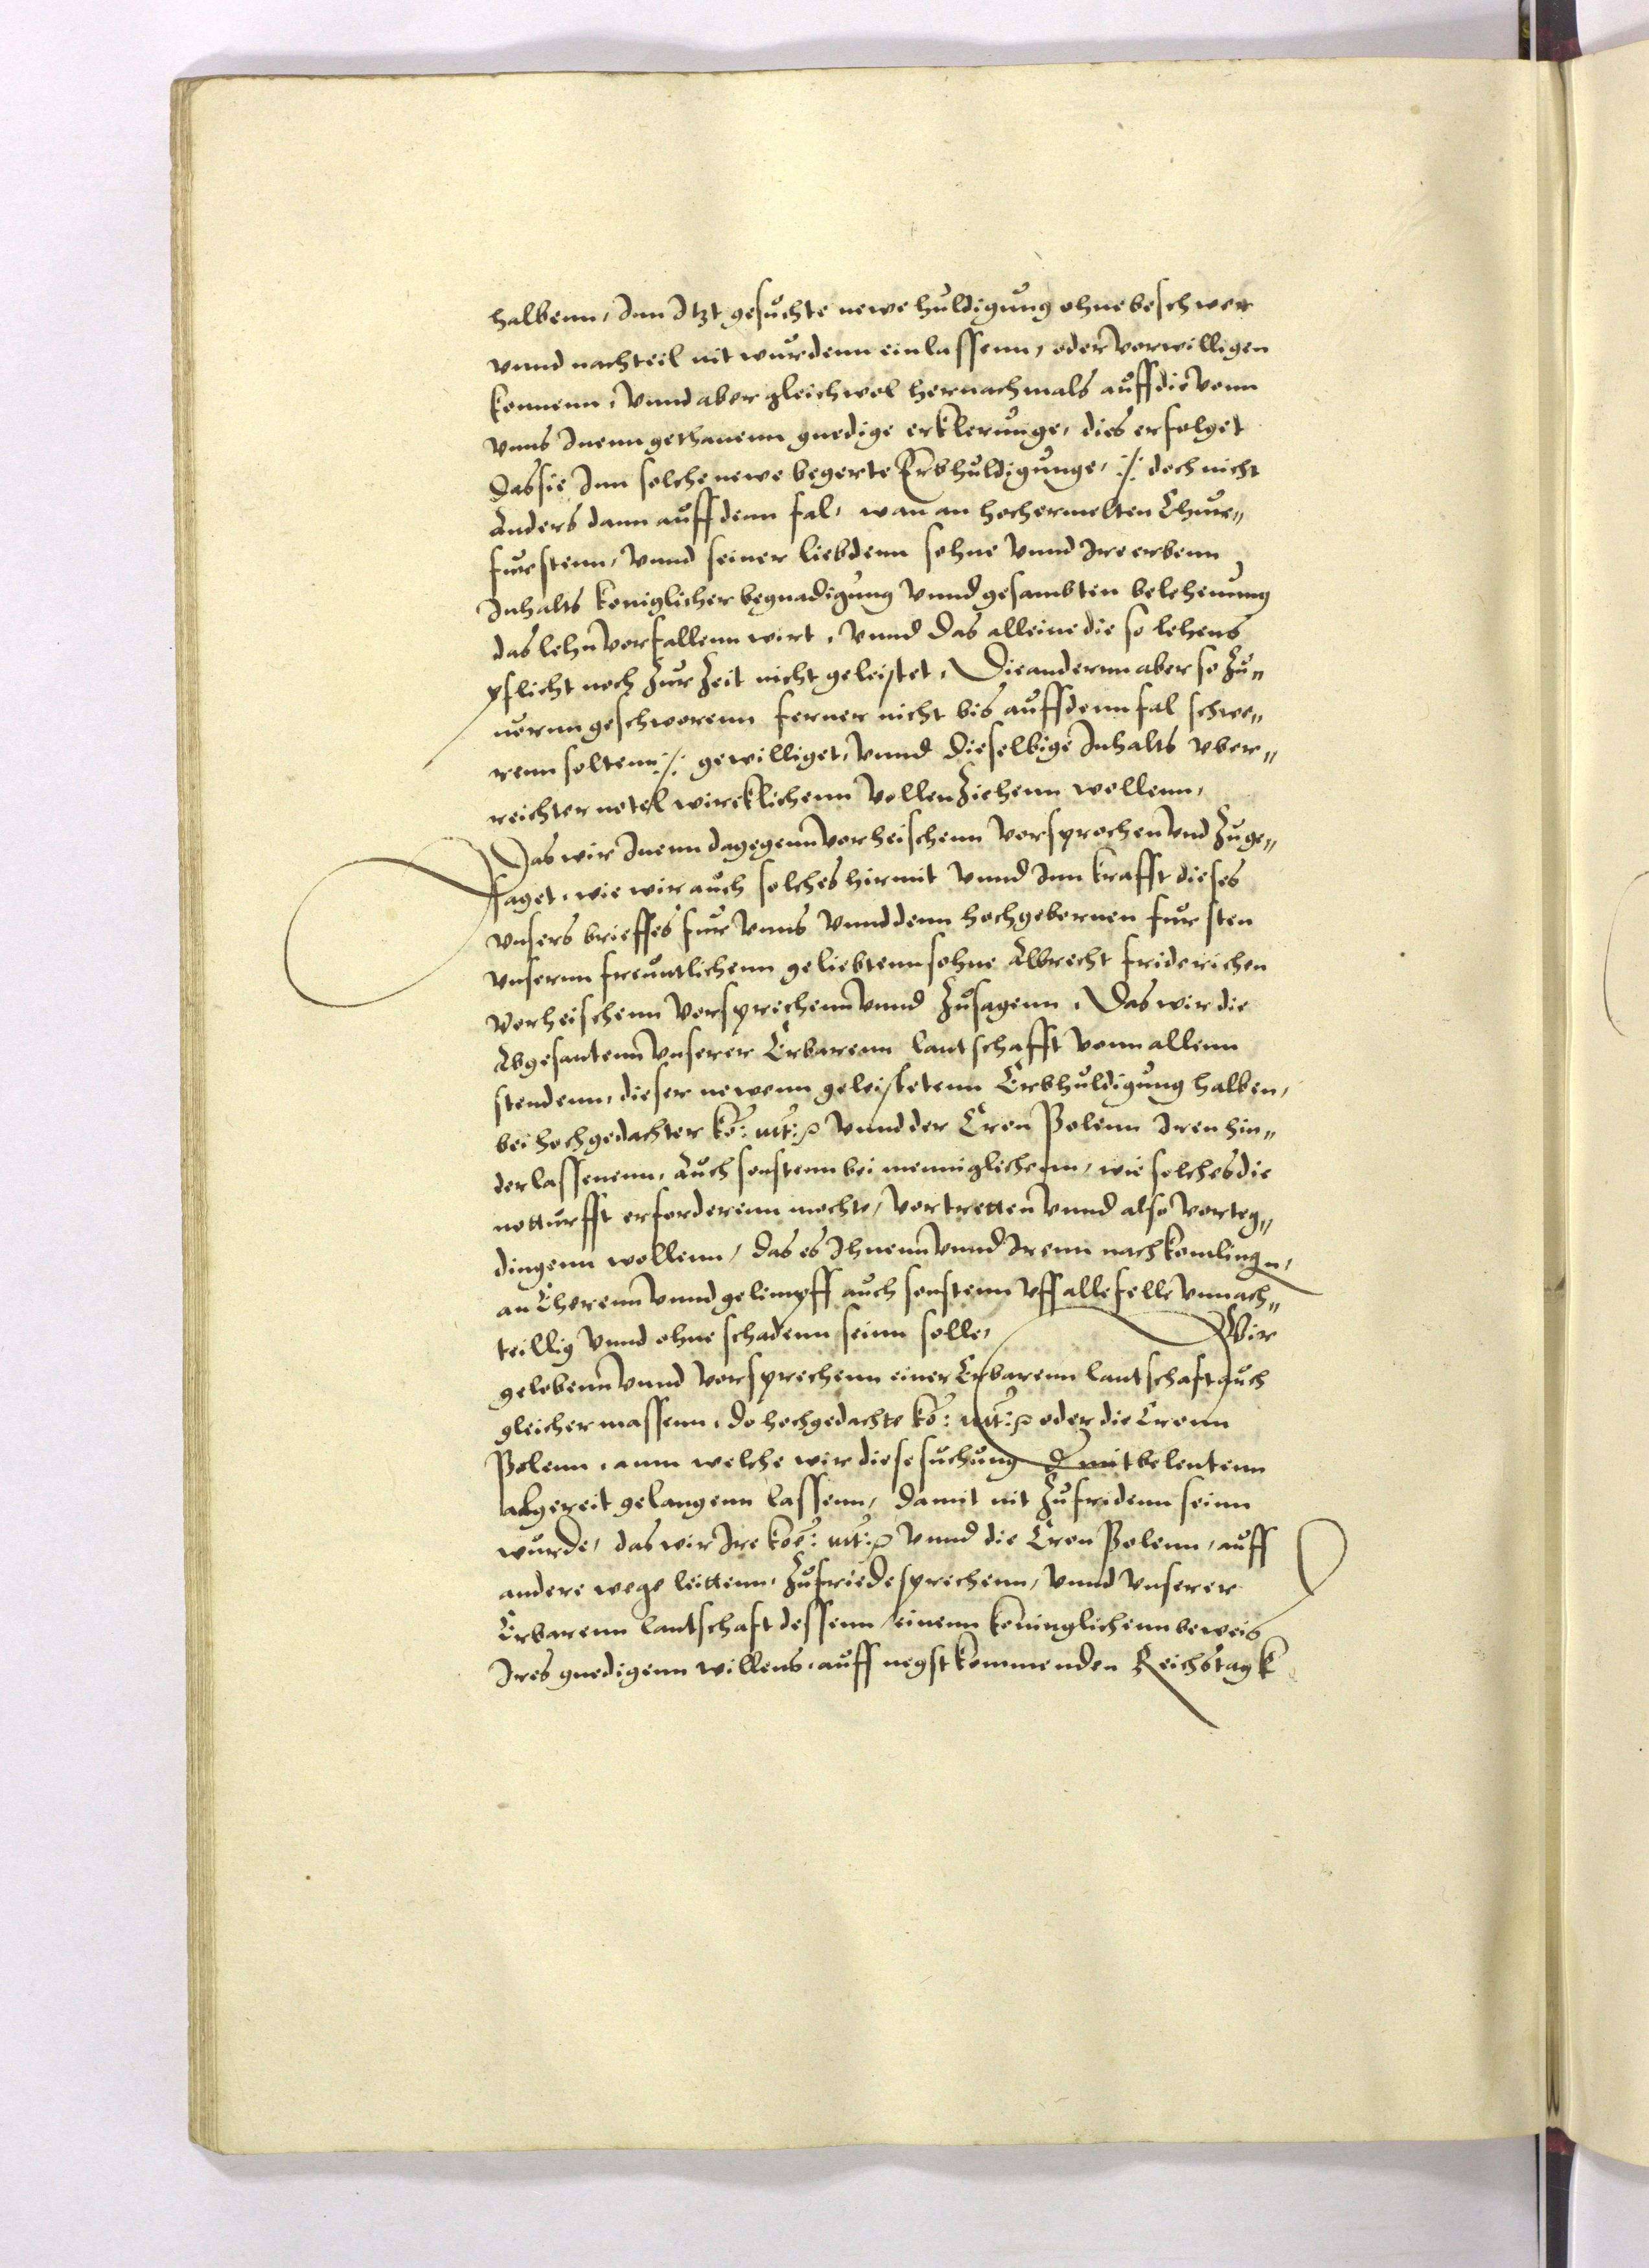 halbenn, Inn Itzt gesuchte newe huldigung ohne beschwer
vnnd nachteil nit wurdenn einlassenn, oder vorwilligen
konnenn, Vnnd aber gleichwol hernachmals auff die vonn
vnns Inenn gethanenn gnedige erklerunge, dies erfolget
Das sie Inn solche newe begerte Erbhuldigunge, ·/· doch nicht
Anders dann auff denn fal, wan an hochermelten Chur„
furstenn, Vnnd seiner liebdenn sohne Vnnd Ire erbenn
Inhalts koniglicher begnadigung Vnnd gesambten belehenung
das lehn vorfallenn wirt, Vnnd das alleine die so lehens
pflicht noch zur Zeit nicht geleistet, Die andernn aber so Zu„
uornn geschworenn ferner nicht bis auff denn fal schwe„
renn soltenn ·/· gewilliget, Vnnd dieselbige Inhalts vber„
reichter notel wircklichenn vollenziehenn wollenn,
Das wir Inenn dagegenn vorheischenn vorsprochen vnd zuge„
saget, wie wir auch solches hirmit vnnd Inn krafft dieses
vnsers brieffes fur vnns vnnd denn hochgebornen fursten
vnsernn freuntlichenn geliebtenn sohne Albrecht friderichen
vorheischenn vorsprechenn vnnd Zusagenn, Das wir die
Abgesantenn vnserer Erbarenn lantschafft vonn allenn
stendenn, dieser newenn geleistetenn Erbhuldigung halben,
bei hochgedachter ko: mt: vnnd der Cron Polenn Iren hin„
derlassenenn, Auch sonstenn bei menniglichenn, wie solches die
notturfft erforderenn mochte, vortretten vnnd also vorteg„
dingenn wollenn, das es Ihnenn vnnd Irenn nachkomlingn,
an Eherenn vnnd gelimpff auch sonstenn vff alle felle vnnach„
teillig vnnd ohne schadenn seinn solle, Wir
gelobenn vnnd vorsprechenn einer Erbarenn lantschaft auch
gleichermassenn, do hochgedachte ko: mt: oder die Cronn
Polenn, ann welche wir diese suchung mitbelentenn
albgereit gelangenn lassenn, damit nit Zufridenn seinn
wurde, das wir Ire koe: mt: vnnd die Cron Polenn, auff
andere wege leittenn, Zufriede sprechenn, vnnd vnserer
Erbarenn lantschaft dessenn einenn koninglichenn beweis
Ires gnedigenn willens, auff negstkommenden Reichstagk